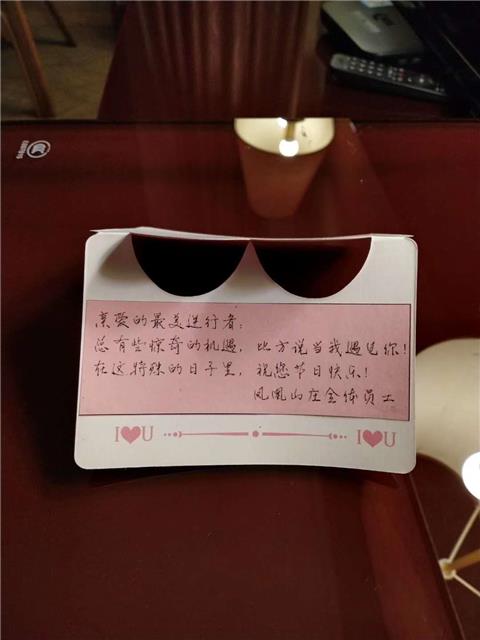 亲爱的最美逆行者：
总有些惊奇的机遇，比方说当我遇见你！
在这特殊的日子里，祝您节日快乐！
凤凰山庄全体员工
I♥U I♥U